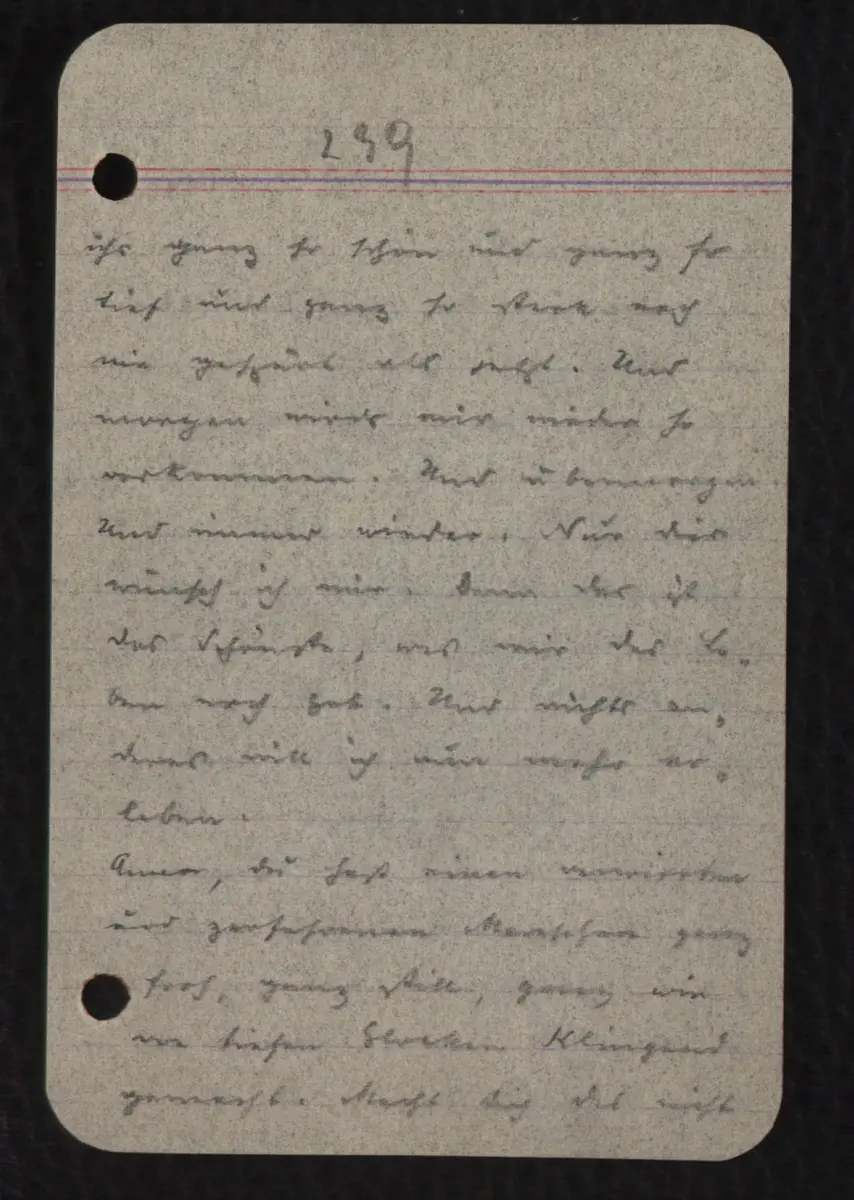 239
ichs ganz so schön und ganz so
tief und ganz so stark noch
nie gespürt als jetzt. Und
morgen wirds mir wieder so
vorkommen. Und übermorgen.
Und immer wieder. Nur dies
wünsch ich mir. Denn das ist
das Schönste, was mir das Le-
ben noch gab. Und nichts an-
deres will ich nun mehr er-
leben.
du hast einen verwirrten
und zerfahrenen Menschen ganz
froh, ganz still, ganz wie
von tiefen Glocken klingend
gemacht. Macht dich das nicht